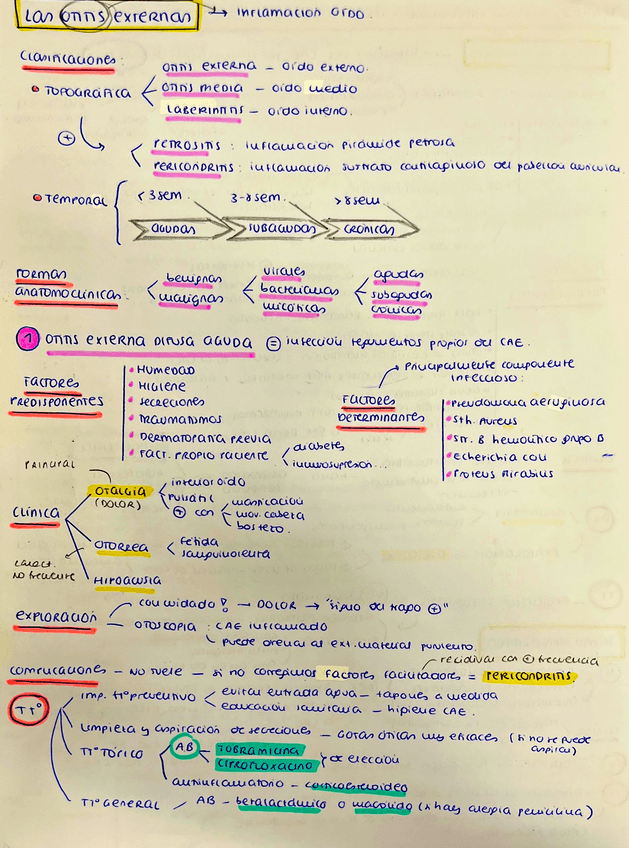 LAS OTITIS EXTERNAS → INFLAMACIÓN OÍDO.
Clasificaciones:
• TOPOGRÁFICA
OTITIS EXTERNA – OÍDO EXTERNO.
OTITIS MEDIA – OÍDO MEDIO
LABERINTITIS – OÍDO INTERNO.
+
PETROSITIS: INFLAMACIÓN PIRÁMIDE PETROSA
PERICONDRITIS: INFLAMACIÓN SUSTRATO CARTILAGINOSO DEL PABELLÓN AURICULAR.
• TEMPORAL
<3 SEM. 3-8 SEM. >8 SEM
AGUDAS SUBAGUDAS CRÓNICAS
FORMAS ANATOMOCLÍNICAS
benignas
malignas
virales
bacterianas
micóticas
agudas
subagudas
crónicas
1 OTITIS EXTERNA DIFUSA AGUDA = infección tegumentos propios del CAE.
FACTORES PREDISPONENTES
• HUMEDAD
• HIGIENE
• SECRECIONES
• TRAUMATISMOS
• DERMATOPATÍA PREVIA
• FACT. PROPIO PACIENTE
diabetes
inmunosupresión...
FACTORES DETERMINANTES
→ Principalmente componente infeccioso:
• Pseudomona aeruginosa
• Sth. Aureus
• Str. B hemolítico grupo B
• Echerichia coli
• Proteus Mirabilis
CLÍNICA
PRINCIPAL
OTALGIA
(DOLOR)
intenso oído
Pulsátil
+ con
masticación
mov. cabeza
bostezo.
OTORREA
Fétida
sanguinolenta
caract. no frecuente
HIPOACUSIA
EXPLORACIÓN
con cuidado! → DOLOR → "signo del trago +"
OTOSCOPIA: CAE inflamado
puede drenar al ext. material purulento.
COMPLICACIONES – NO suele – si no corregimos Factores facilitadores = PERICONDRITIS.
recidivar con + frecuencia
TTº
Imp. ttº preventivo
evitar entrada agua – tapones a medida
educación sanitaria – higiene CAE.
Limpieza y aspiración de secreciones – Gotas óticas muy eficaces (si no se puede aspirar)
TTº TÓPICO
AB
TOBRAMICINA
CIPROFLOXACINO
de elección
antiinflamatorio – corticoesteroideo
TTº GENERAL / AB – betalactámico o macrólido (si hay alergia penicilina)